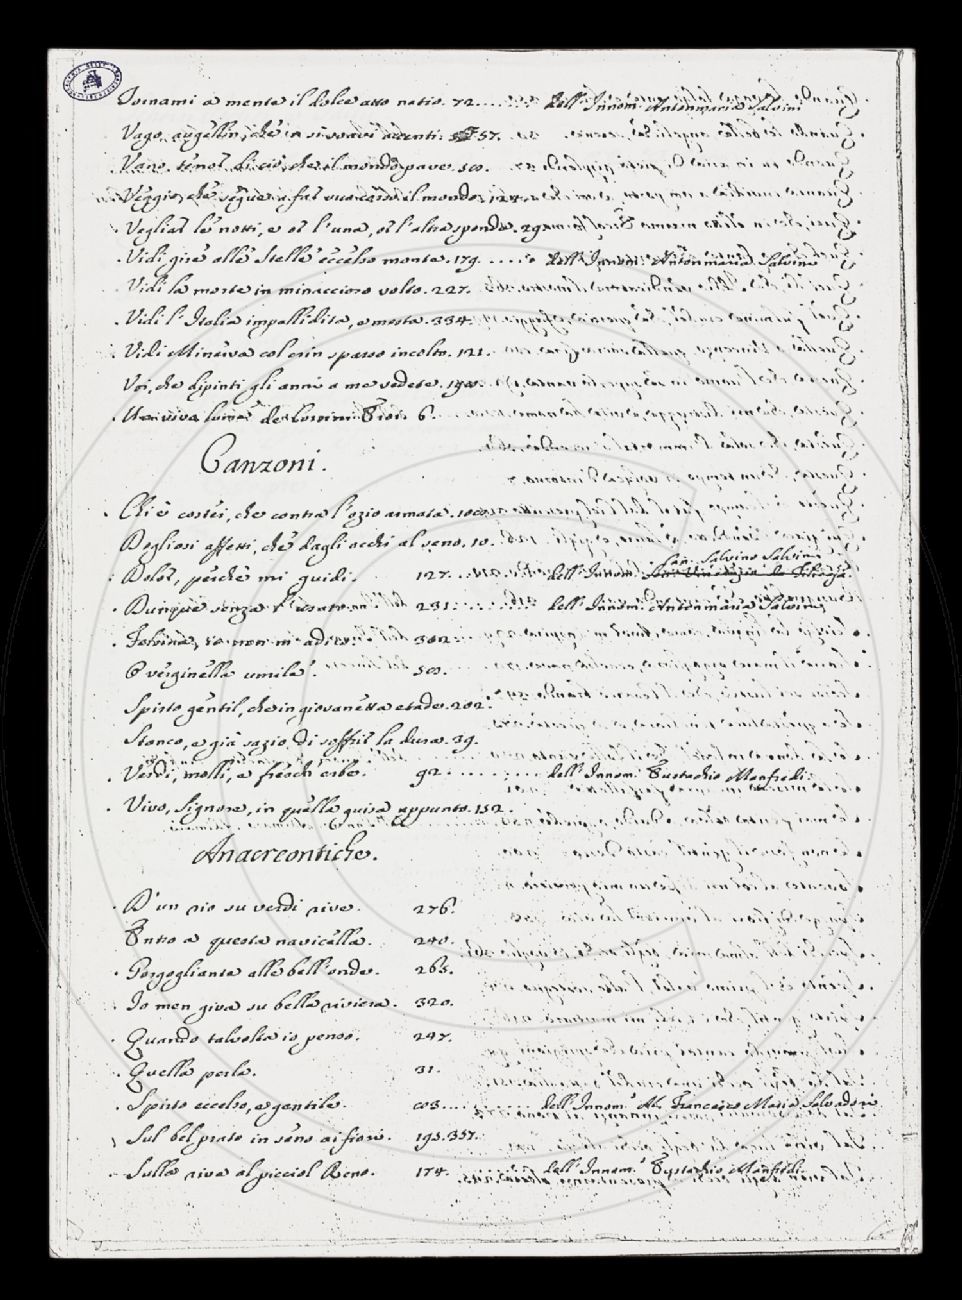 Tornami a mente il dolce atto natio. 72..... dell' Innom. Antonmaria Salvini
Vago augellin, che in si soavi accenti. 57.
Vano timor di ciò, che il mondo pave. 50.
Veggio, che segue a far suo corso il mondo. 124.
Vegliar le notti, e or l'una, or l'altra sponda. 29
Vidi gire alle stelle eccelso monte. 179..... dell' Innom. Antonmaria Salvini
Vidi la morte in minaccioso volto. 227.
Vidi l'Italia impallidita, e mesta. 334.
Vidi Minerva col crin sparso incolto. 121.
Voi, che dipinti gli anni a me vedete.
viva lume de 6.
Canzoni.
Chi è costei, che contra l'ozio armata.
Dogliosi affetti, che dagli occhi al seno. 10.
Dolor, perchè mi guidi. 127..... dell' Innom. Can. Salvino Salvini
Dunque senza 231....... dell' Innom. Antonmaria Salvini
se non m'adiro. 302.
O verginella umile. 303.
Spirto gentil, che in giovanetta etade. 202.
Stanco, e già sazio di soffrir la dura. 39.
Verdi, molli, e fresch' erbe. 92.......... dell' Innom. Eustachio Manfredi
Vivo, Signore, in quella guisa appunto. 152.
Anacreontiche.
D'un rio su verdi rive. 276.
Entro a questa navicella. 240.
Gorgogliante alle bell' onde. 265.
Io men giva su bella riviera. 320.
Quando talvolta io penso. 247.
Quella perla. 31.
Spirto eccelso, e gentile. 203.... dell' Innom. Ab. Francesco Maria Salvadori
Sul bel prato in seno ai fiori. 195.357.
Sulla riva al picciol Reno. 174. dell' Innom. Eustachio Manfredi